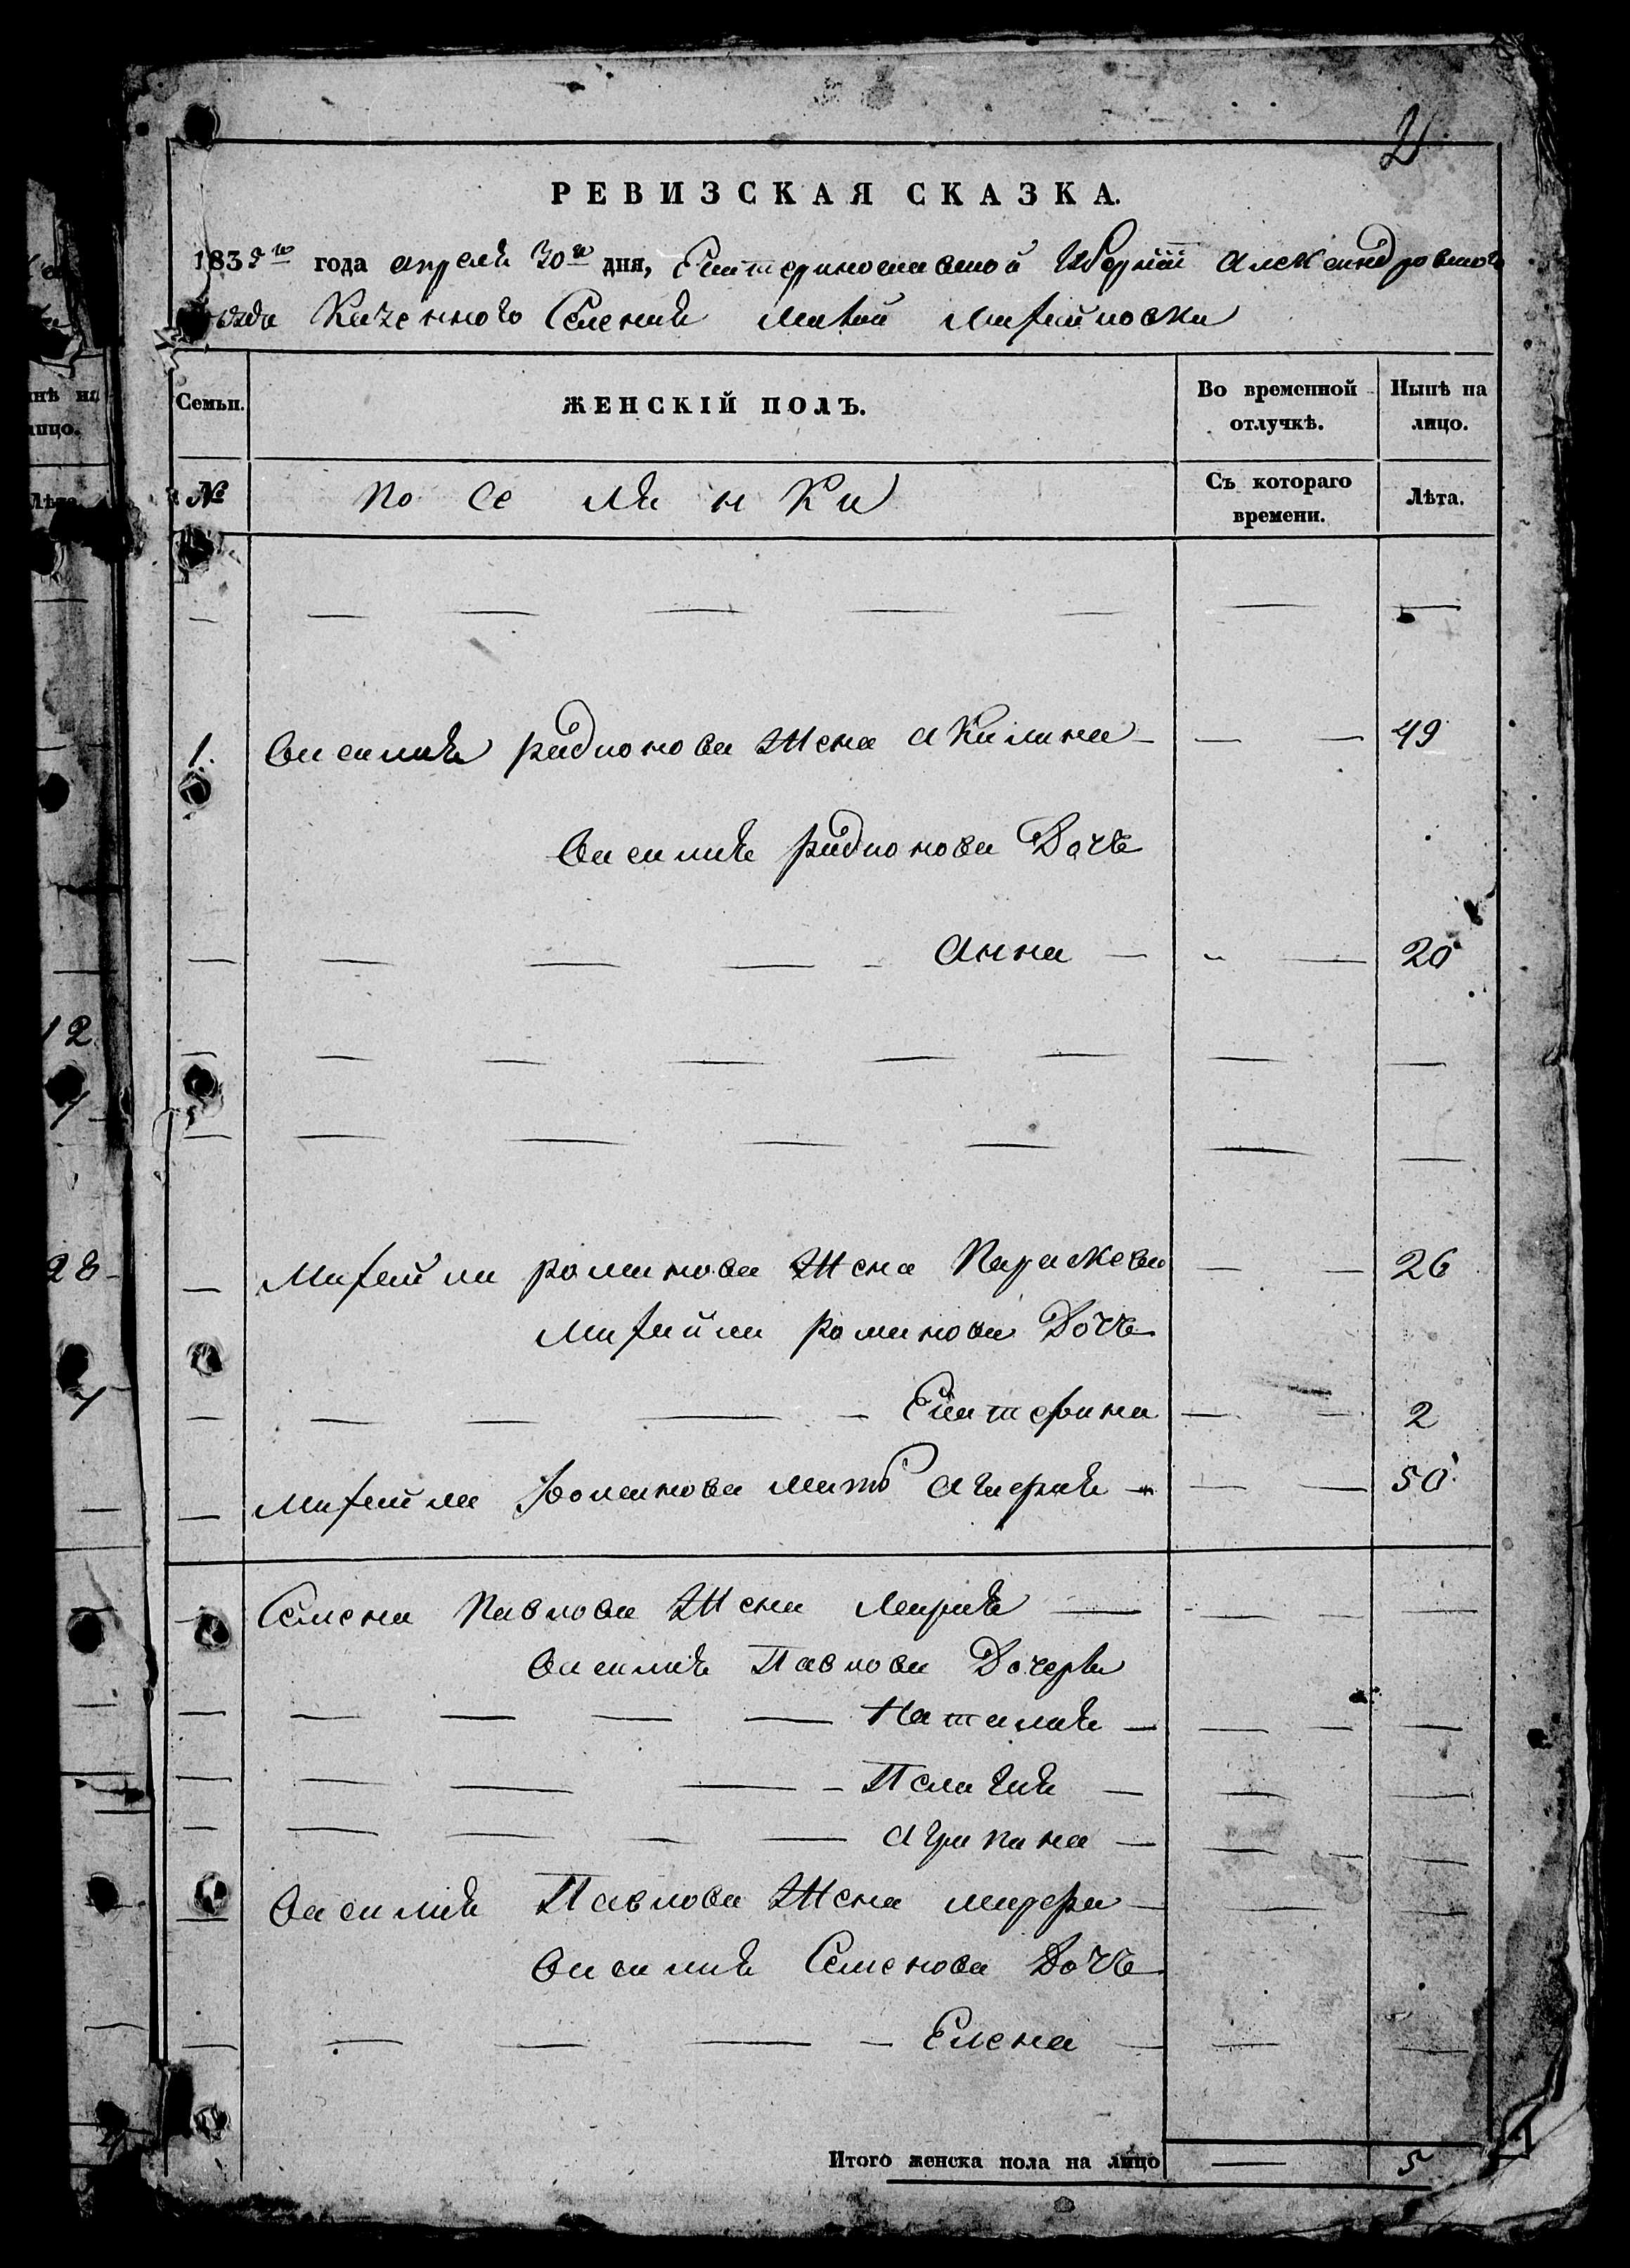 2
РЕВИЗСКАЯ СКАЗКА.
1835го года апреля 30го дня, Екатериносла­вской Губерніи Александровского
уезда Казенного Селения Малой Михайловки
Семьи.
ЖЕНСКІЙ ПОЛЪ.
Во временной отлучкѣ.
Нынѣ на лицо.
№
По се ля н ки
Съ котораго времени.
Лѣта.
1. Василия радионова Жена акилина 49
Василия радионова Дочь
Анна 20
Михайла романова Жена Параскева 26
Михайла романова Дочь
Екатерина 2
Михайла романова мать 50
Семена Павлова Жена Мария
Василия Павлова Дочери
Наталия
Пелагия
агрипина
Василия Павлова Жена
Василия Семенова Дочь
Елена
Итого женска пола на лицо 5
12
1
28